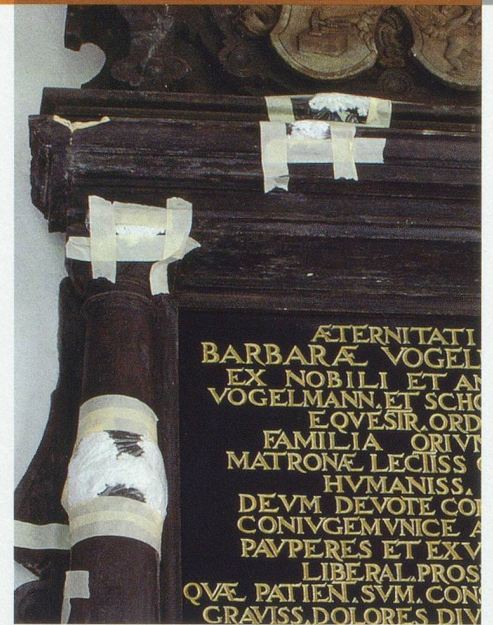 ÆTERNITATI
BARBARÆ VOGEL
EX NOBILI ET AN
VOGELMANN, ET SCHO
EQVESTR. ORD
FAMILIA ORIVN
MATRONÆ LECTISS
HVMANISS.
DEVM DEVOTE CO
CONIVGEMVNICE A
PAVPERES ET EXV
LIBERAL. PROS
QVÆ PATIEN. SVM. CON
GRAVISS. DOLORES DIV